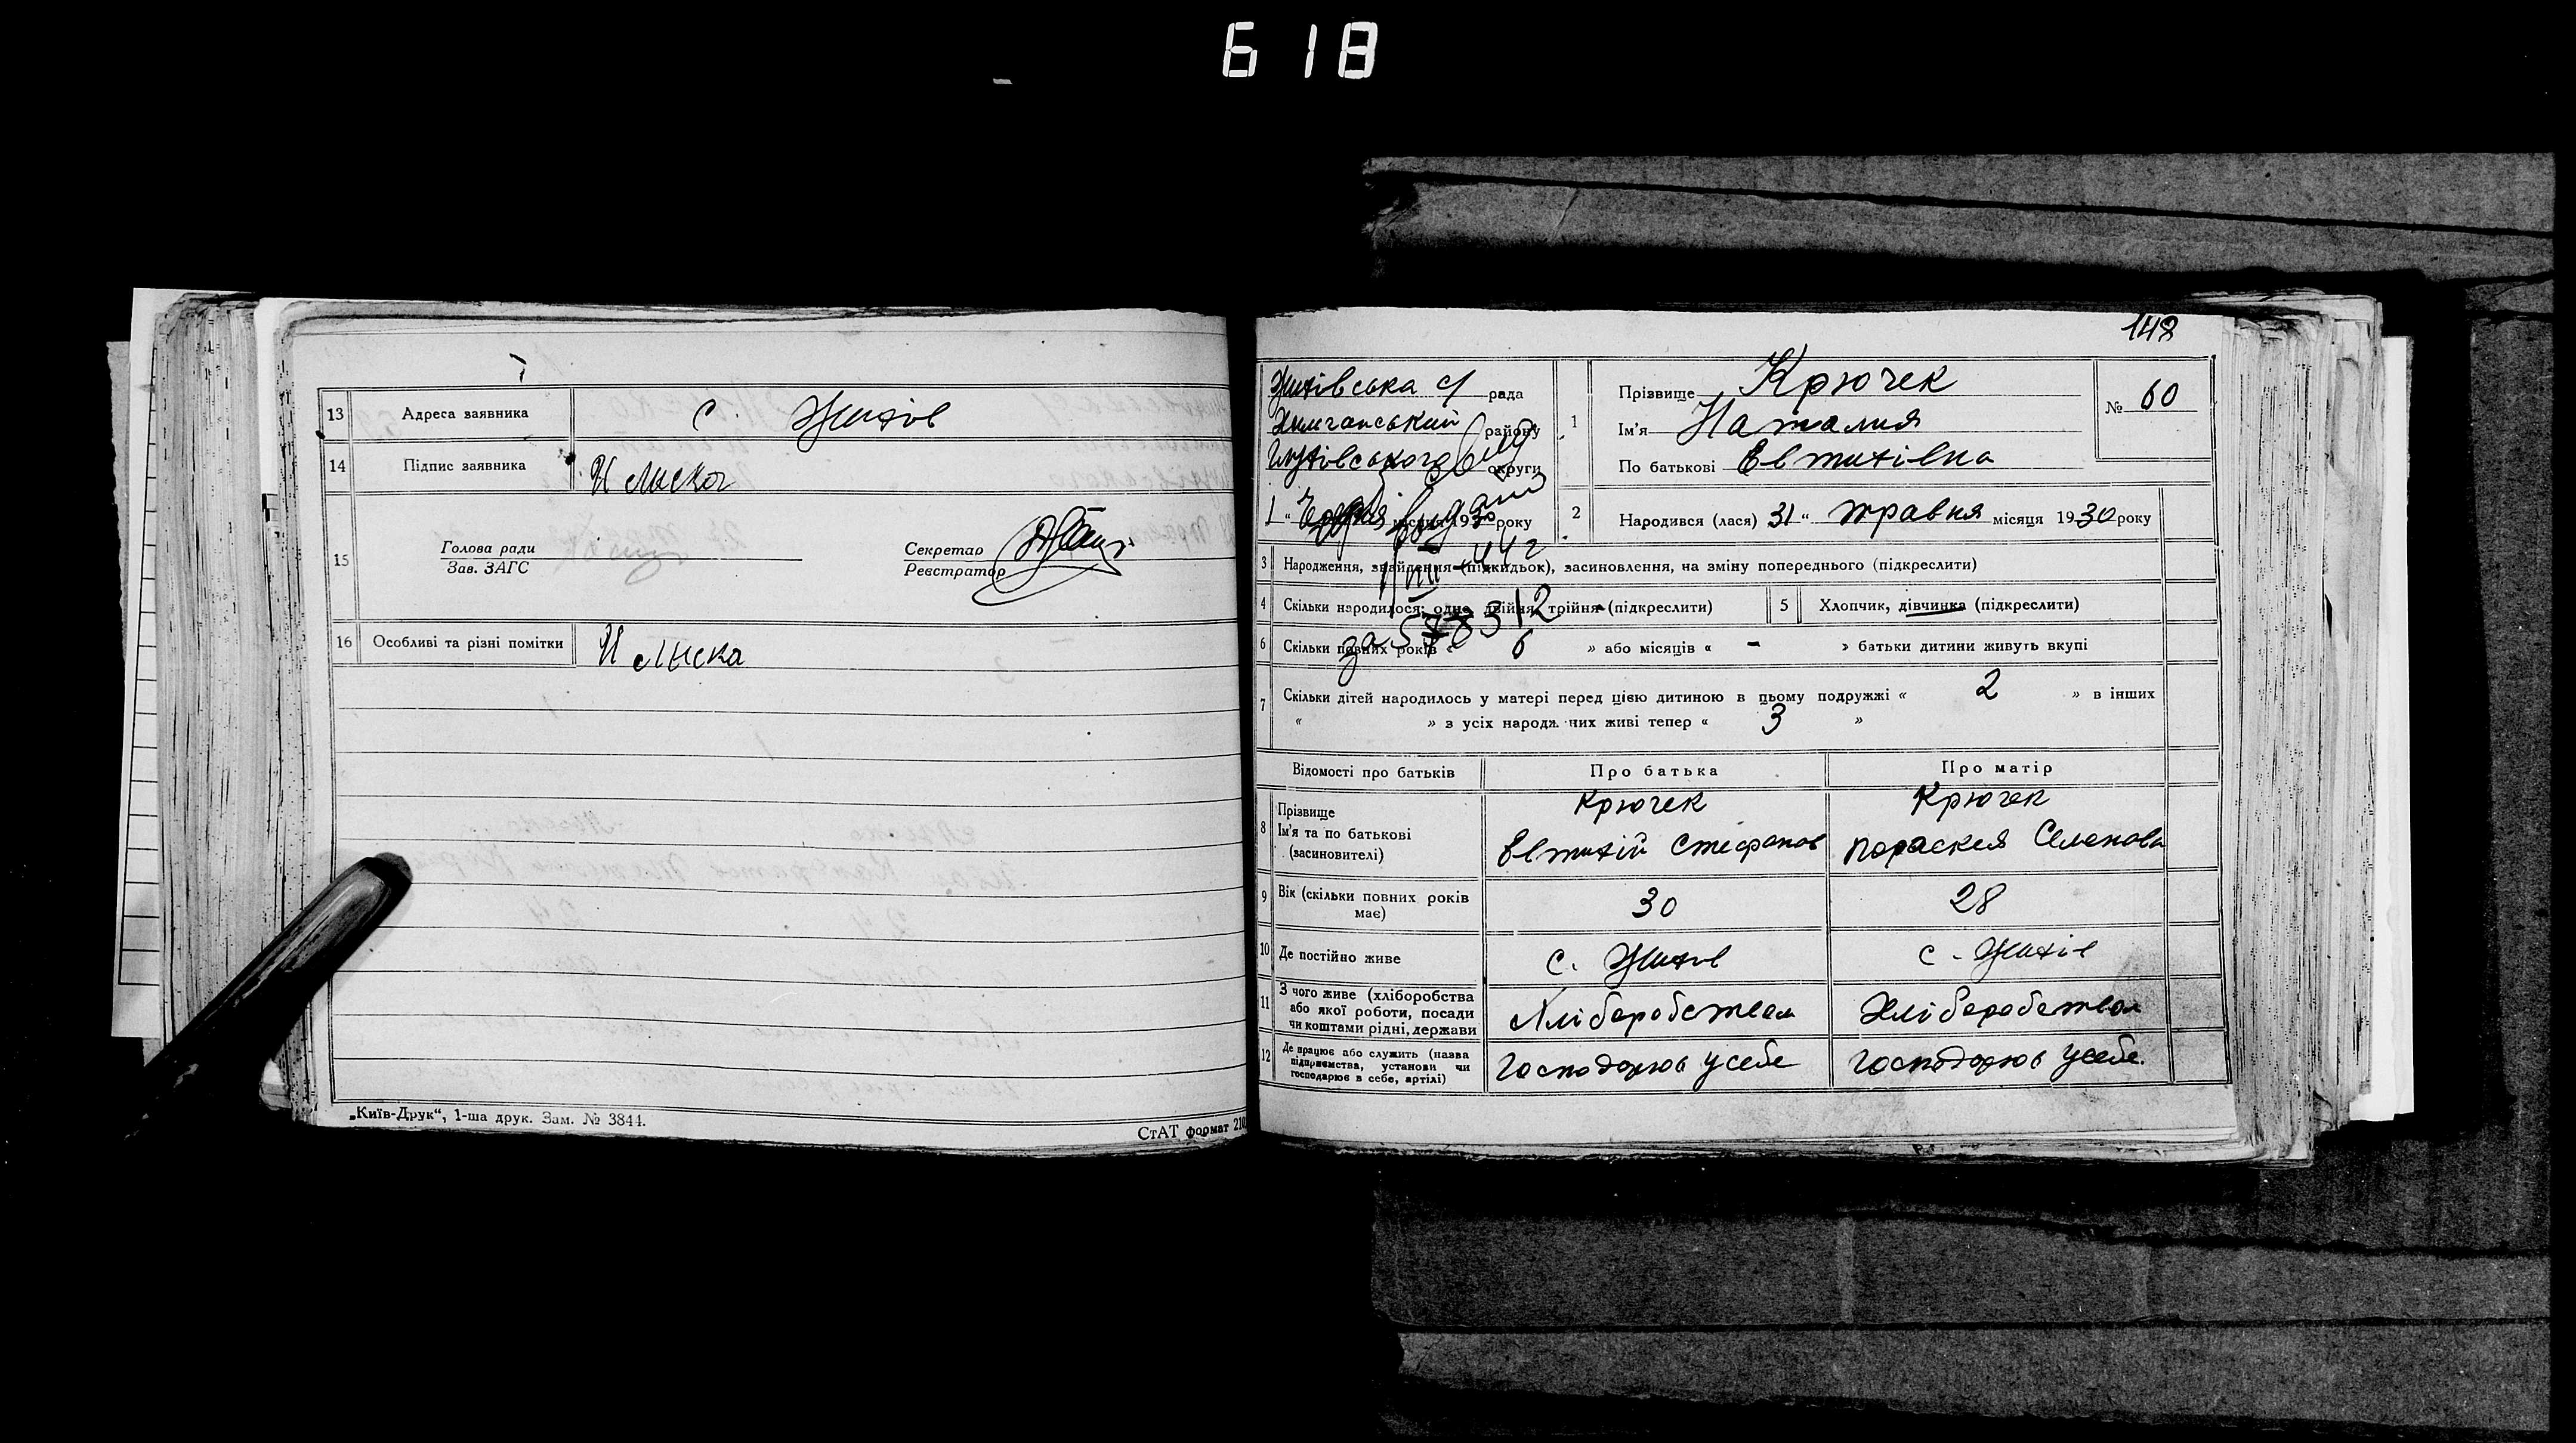 618
13 Адреса заявника с. Жихів
14 Підпис заявника
15 Голова ради
Зав. ЗАГС
Секретар
Реєстратор
16 Особливі та різні помітки
„Київ-Друк“, 1-ша друк. Зам. № 3844.
СтАТ формат 210
148
Жихівська с/рада
Хильчанський району
Глухівського округи
1 “ місяця 1930 року
видано
за 578312
1 Прізвище Крючек
Ім'я Наталия
По батькові Евтихівна
№ 60
2 Народився (лася) 31 “ травня місяця 1930 року
3 Народження, знайдення (підкидьок), засиновлення, на зміну попереднього (підкреслити)
4 Скільки народилося: одне, двійня, трійня (підкреслити)
5 Хлопчик, дівчинка (підкреслити)
6 Скільки повних років « 6 » або місяців « - » батьки дитини живуть вкупі
7 Скільки дітей народилось у матері перед цією дитиною в цьому подружжі « 2 » в інших
« » з усіх народж. них живі тепер « 3 »
Відомості про батьків Про батька Про матір
8 Прізвище Крючек Крючек
Ім'я та по батькові
(засиновителі) Евтихій Стефанов Параскея Семенова
9 Вік (скільки повних років
має) 30 28
10 Де постійно живе с. Жихів с. Жихів
11 З чого живе (хліборобства
або якої роботи, посади
чи коштами рідні, держави Хліборобством Хліборобством
12 Де працює або служить (назва
підприємства, установи чи
господарює в себе, артілі) Господорює у себе Господорює у себе.